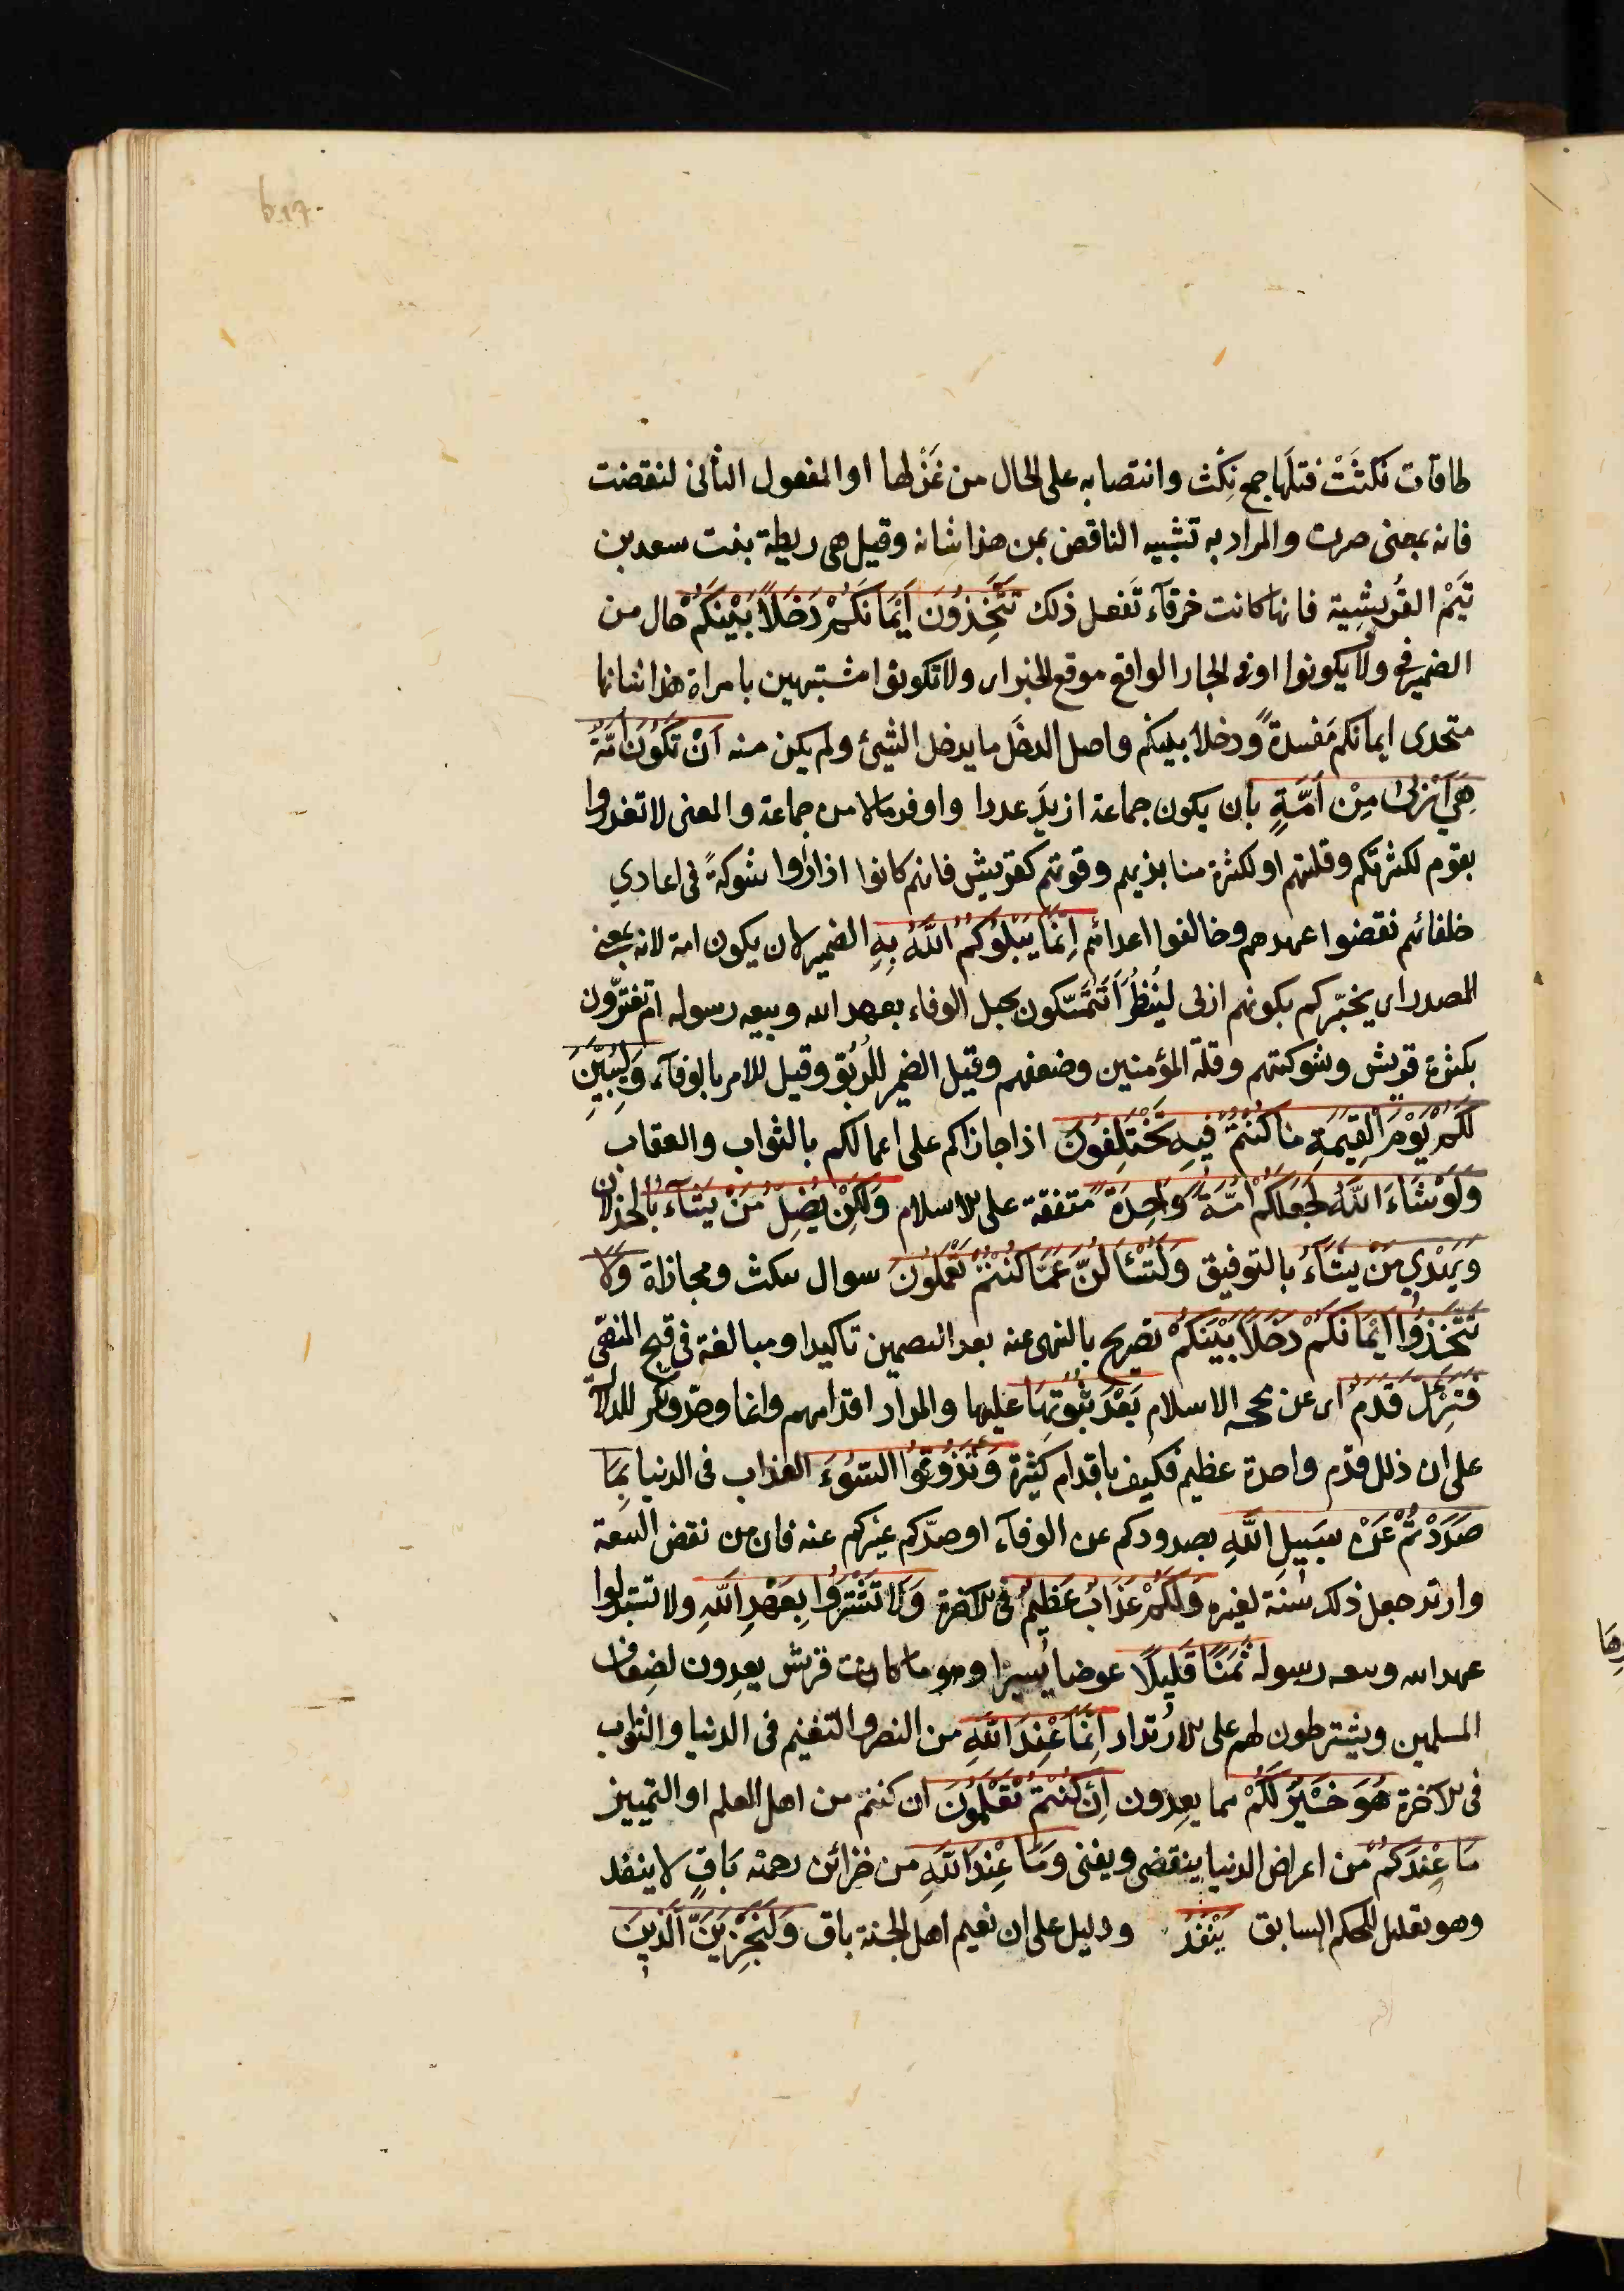 طاقات نَكَثَتْ فتلَها جمع نِكْث وانتصابه على الحال من غَزْلها او المفعول الثانى لنقضت
فانه بمعنى صرت والمراد به تشبيه الناقض بمن هذا شانه وقيل هى ريطة بنت سعد بن
تَيْم القُريشِية فانها كانت خرقآء تَفعل ذلك تَتَّخِذُونَ اَيْمَانَكُمْ دَخَلًا بَيْنَكُمْ حال من
الضمير فى ولا يكونوا او فى الجار الواقع موقع الخبر اى ولا تكونوا مشتبهين بامراة هذا شانها
متخذى ايمانكم مَفسدةً ودخلا بينكم واصل الدخَل ما يدخل الشيئ ولم يكن منه اَنْ تَكُونَ اُمَّةٌ
هِيَ اَرْبٰى مِنْ اُمَّةٍ بان يكون جماعة ازيدَ عددا واوفر مالا من جماعة والمعنى لا تغدروا
بقوم لكثرتكم وقلتهم او لكثرة منابذيهم وقوتهم كقريش فانهم كانوا اذا رَاَوا شوكةً فى اعادي
حلفائهم نقضوا عهدهم وحالفوا اعدائهم اِنَّمَا يَبْلُوكُمُ اللّٰهُ بِهِ الضمير لان يكون امة لانه بمعنى
المصدر اى يختبّركم بكونهم اربى ليُنظُرَ اَتَتَمَسّكون بحبل الوفاء بعهد الله وبيعه رسوله ام تغترّون
بكثرة قريش وشوكتهم وقلة المؤمنين وضعفهم وقيل الضمير للرُبُوّ وقيل للامر بالوفآء وَلَيُبَيِّنَنَّ
لَكُمْ يَوْمَ الْقِيٰمَةِ مَا كُنْتُمْ فِيهِ تَخْتَلِفُونَ اذا جازاكم على اعمالكم بالثواب والعقاب
وَلَوْ شَاءَ اللّٰهُ لَجَعَلَكُمْ اُمَّةً وَاحِدَةً متفقة على الاسلام وَلٰكِنْ يُضِلُّ مَنْ يَشَآءُ بالخذلان
وَيَهْدِي مَنْ يَشَآءُ بالتوفيق وَلَتُسْأَلُنَّ عَمَّا كُنْتُمْ تَعْمَلُونَ سوال سكث ومجازاة وَلَا
تَتَّخِذُوا اَيْمَانَكُمْ دَخَلًا بَيْنَكُمْ تصريح بالنهى عنه بعد التصمين تاكيدا ومبالغة فى قبح المنهّى
فَتَزِلَّ قَدَمٌ اى عن محجه الاسلام بَعْدَ ثُبُوتِهَا عليها والمراد اقدامهم وانما وحّد ونكّر للدلالة
على ان ذلل قدم واحدة عظيم فكيف باقدام كثيرة وَتَذُوقُوا السُّوءَ العذاب فى الدنيا بِمَا
صَدَدْتُمْ عَنْ سَبِيلِ اللّٰهِ بصدودكم عن الوفآء او صدّكم غيركم عنه فان من نقض البيعة
وارتد جعل ذلك سُنة لغيره وَلَكُمْ عَذَابٌ عَظِيمٌ فى الاخرة وَلَا تَشْتَرُوا بِعَهْدِ اللّٰهِ ولا تستبدلوا
عهد الله وبيعه رسوله ثَمَنًا قَلِيلًا عوضا يَسيرًا وهو ما كانت قريش يعِدون لضِعاف
المسلمين ويشترطون لهم على الارتداد اِنَّمَا عِنْدَ اللّٰهِ من النصر والتغنيم فى الدنيا والثواب
فى الاخرة هُوَ خَيْرٌ لَكُمْ مما يعِدون اِنْ كُنْتُمْ تَعْلَمُونَ ان كنتم من اهل العلم او التمييز
مَا عِنْدَكُمْ من اعراض الدنيا ينقضى ويفنى وَمَا عِنْدَ اللّٰهِ من خزائن رحمته بَاقٍ لا ينفد
وهو تعليل للحكم السابق يَنْفَدُ ودليل على ان نعيم اهل الجنة باق وَلَنَجْزِيَنَّ الَّذِينَ